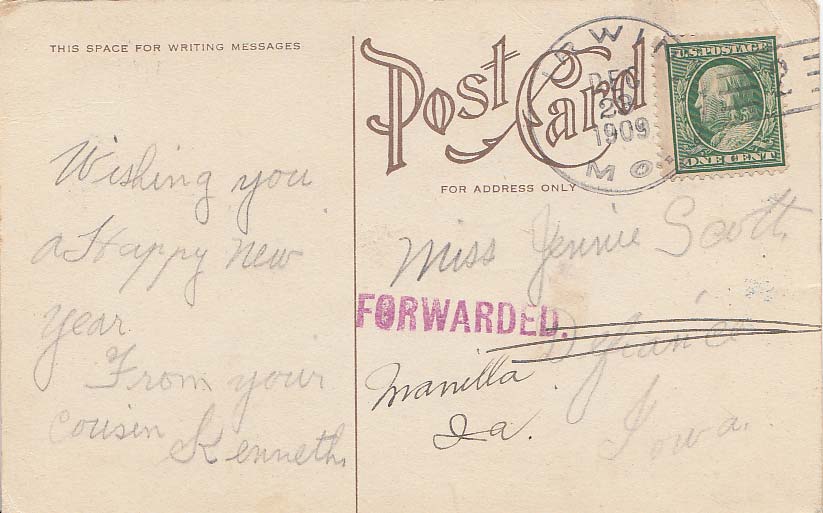 THIS SPACE FOR WRITING MESSAGES
Post Card
FOR ADDRESS ONLY
IRWIN
DEC
29
1909
MO.
U.S. POSTAGE
ONE CENT
Wishing you
a Happy New
Year
From your
Cousin
Kenneth.
Miss Jennie Scott
FORWARDED.
Defiance
Iowa.
Manilla
Ia.